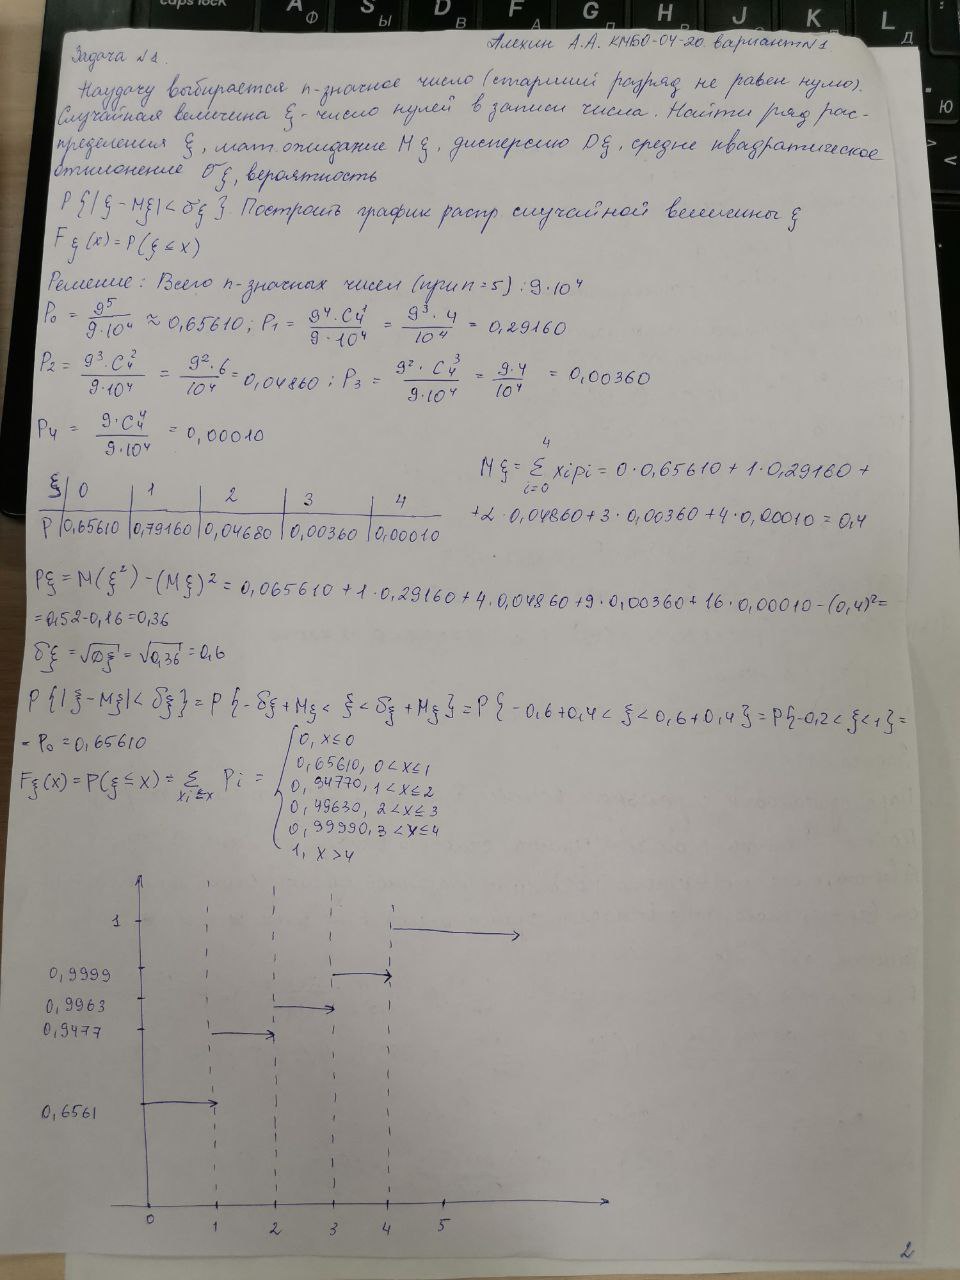 caps lock
A Ф S Ы D В F А G П H Р J О K Л L Д
Ю
Алехин А.А. КМБО-04-20. вариант №1
Задача №1.
Наудачу выбирается n-значное число (старший разряд не равен нулю).
Случайная величина ξ - число нулей в записи числа. Найти ряд рас-
пределения ξ, мат. ожидание Mξ, дисперсию Dξ, средне квадратическое
отклонение σξ, вероятность
P{|ξ-Mξ|<σξ}. Построить график распр. случайной величины ξ
Fξ(x)=P(ξ≤x)
Решение: Всего n-значных чисел (при n=5): 9·10^4
P0 = 9^5/(9·10^4) ≈ 0,65610; P1 = (9^4·C_4^1)/(9·10^4) = (9^3·4)/10^4 = 0,29160
P2 = (9^3·C_4^2)/(9·10^4) = (9^2·6)/10^4 = 0,04860; P3 = (9^2·C_4^3)/(9·10^4) = (9·4)/10^4 = 0,00360
P4 = (9·C_4^4)/(9·10^4) = 0,00010
Mξ = Σ_{i=0}^{4} xipi = 0·0,65610 + 1·0,29160 +
+2·0,04860+3·0,00360+4·0,00010=0,4
ξ | 0 | 1 | 2 | 3 | 4
P | 0,65610 | 0,79160 | 0,04680 | 0,00360 | 0,00010
Dξ = M(ξ^2) - (Mξ)^2 = 0,065610 + 1·0,29160 + 4·0,04860 + 9·0,00360 + 16·0,00010 - (0,4)^2 =
= 0,52-0,16=0,36
σξ = √Dξ = √0,36 = 0,6
P{|ξ-Mξ|<σξ} = P{-σξ+Mξ < ξ < σξ+Mξ} = P{-0,6+0,4 < ξ < 0,6+0,4} = P{-0,2<ξ<1} =
= P0 = 0,65610
Fξ(x) = P(ξ≤x) = Σ_{xi≤x} Pi = {
0, x≤0
0,65610, 0<x≤1
0,94770, 1<x≤2
0,49630, 2<x≤3
0,99990, 3<x≤4
1, x>4
1
0,9999
0,9963
0,9477
0,6561
0 1 2 3 4 5
2